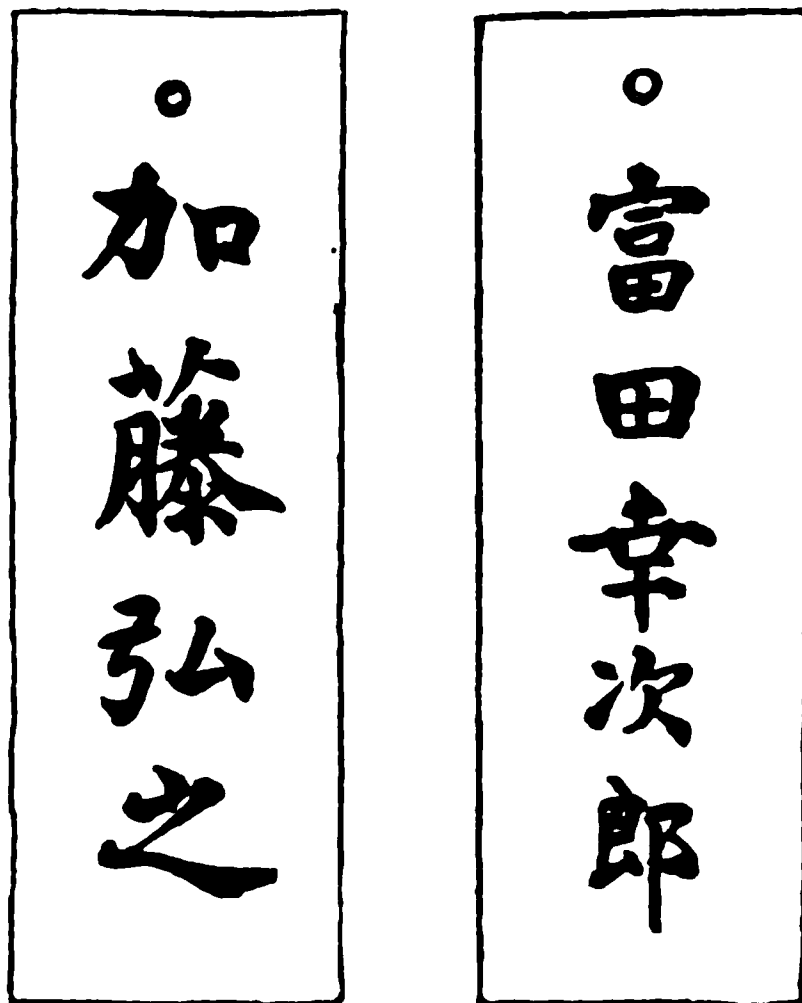 富田幸次郎
加藤弘之